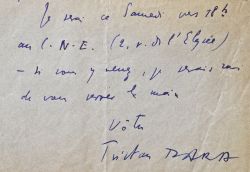 Je serai ce Samedi vers 18h
au C.N.E. (2, r. de l'Elysée)
– si vous y venez, je serais ravi
de vous serrer la main
Vôtre
Tristan TZARA